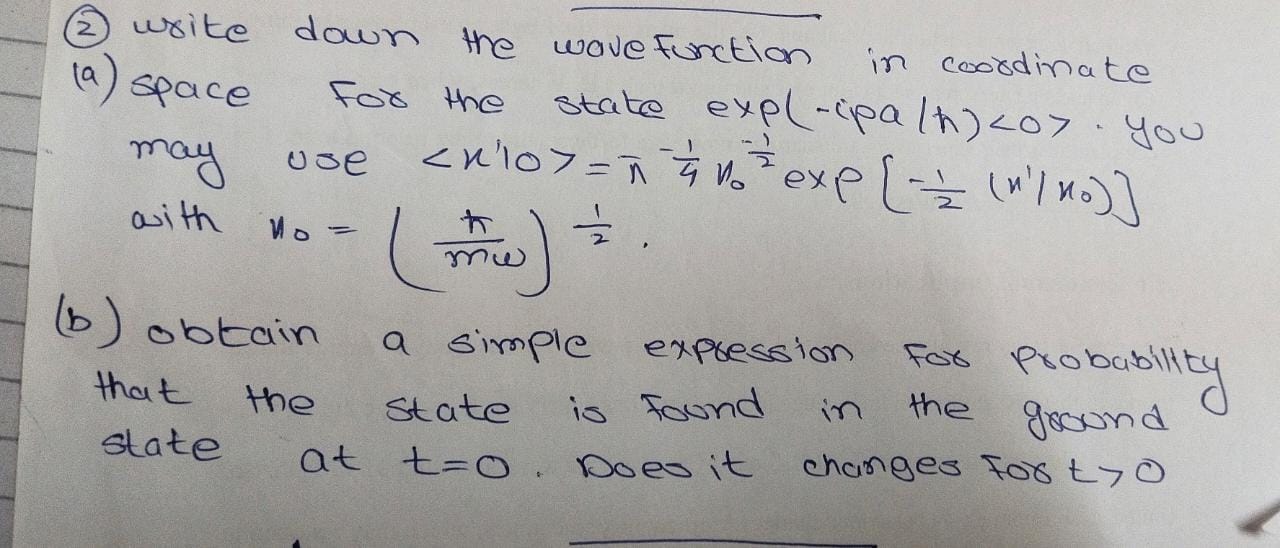 ② write down the wavefunction in coordinate
(a) space For the state exp(-ipa/ħ)<0>. you
may use <x'|0> = π^-1/4 x₀^-1/2 exp[-1/2 (x'/x₀)]
with x₀ = (ħ/mω)^1/2.
(b) obtain a simple expression For probability
that the state is found in the ground
state at t=0. Does it changes For t>0